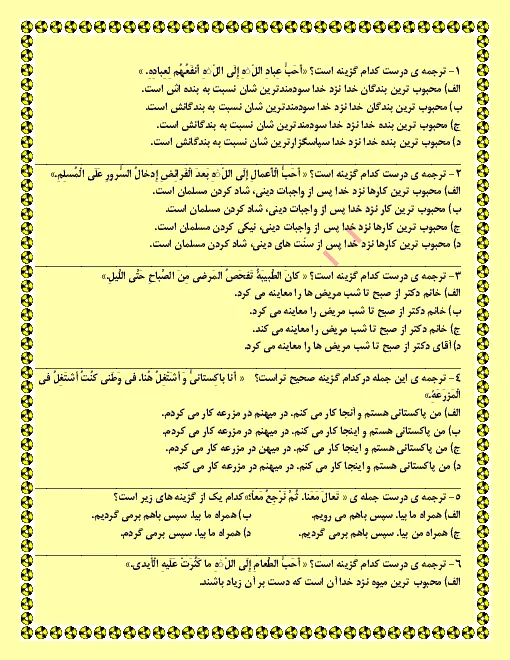 ۱- ترجمه ی درست کدام گزینه است؟ «أحَبُّ عِبادِ اللّٰهِ إلَی اللّٰهِ أنفَعُهُم لِعِبادِهِ. »
الف) محبوب ترین بندگان خدا نزد خدا سودمندترین شان نسبت به بنده اش است.
ب) محبوب ترین بندگان خدا نزد خدا سودمندترین شان نسبت به بندگانش است.
ج) محبوب ترین بنده خدا نزد خدا سودمندترین شان نسبت به بندگانش است.
د) محبوب ترین بنده خدا نزد خدا سپاسگزارترین شان نسبت به بندگانش است.
۲- ترجمه ی درست کدام گزینه است؟ « أحَبُّ الْأعمالِ إلَی اللّٰهِ بَعدَ الْفَرائِضِ إدخالُ السُّرورِ عَلَی الْمُسلِمِ.»
الف) محبوب ترین کارها نزد خدا پس از واجبات دینی، شاد کردن مسلمان است.
ب) محبوب ترین کار نزد خدا پس از واجبات دینی، شاد کردن مسلمان است.
ج) محبوب ترین کارها نزد خدا پس از واجبات دینی، نیکی کردن مسلمان است.
د) محبوب ترین کارها نزد خدا پس از سنّت های دینی، شاد کردن مسلمان است.
۳- ترجمه ی درست کدام گزینه است؟ « کانَ الطَّبیبَةُ تَفحَصُ المَرضی مِنَ الصَّباحِ حَتَّی اللَّیلِ.»
الف) خانم دکتر از صبح تا شب مریض ها را معاینه می کرد.
ب) خانم دکتر از صبح تا شب مریض را معاینه می کرد.
ج) خانم دکتر از صبح تا شب مریض را معاینه می کند.
د) آقای دکتر از صبح تا شب مریض ها را معاینه می کرد.
٤- ترجمه ی این جمله درکدام گزینه صحیح تر است؟ « أنا باکِستانیٌّ وَ أشتَغِلُ هُنا. فی وَطَنی کُنتُ أشتَغِلُ فی
الْمَزرَعَةِ.»
الف) من پاکستانی هستم و آنجا کار می کنم. در میهنم در مزرعه کار می کردم.
ب) من پاکستانی هستم و اینجا کار می کنم. در میهنم در مزرعه کار می کردم.
ج) من پاکستانی هستم و اینجا کار می کنم. در میهن در مزرعه کار می کردم.
د) من پاکستانی هستم و اینجا کار می کنم. در میهنم در مزرعه کار می کنم.
٥- ترجمه ی درست جمله ی « تَعالَ مَعَنا. ثُمَّ نَرجِعُ مَعاً»کدام یک از گزینه های زیر است؟
الف) همراه ما بیا. سپس باهم می رویم. ب) همراه ما بیا. سپس باهم برمی گردیم.
ج) همراه من بیا. سپس باهم برمی گردیم. د) همراه ما بیا. سپس برمی گردم.
٦- ترجمه ی درست کدام گزینه است؟ « أحَبُّ الطَّعامِ إلَی اللّٰهِ ما کَثُرَتْ عَلَیهِ الْأیدی.»
الف) محبوب ترین میوه نزد خدا آن است که دست بر آن زیاد باشند.